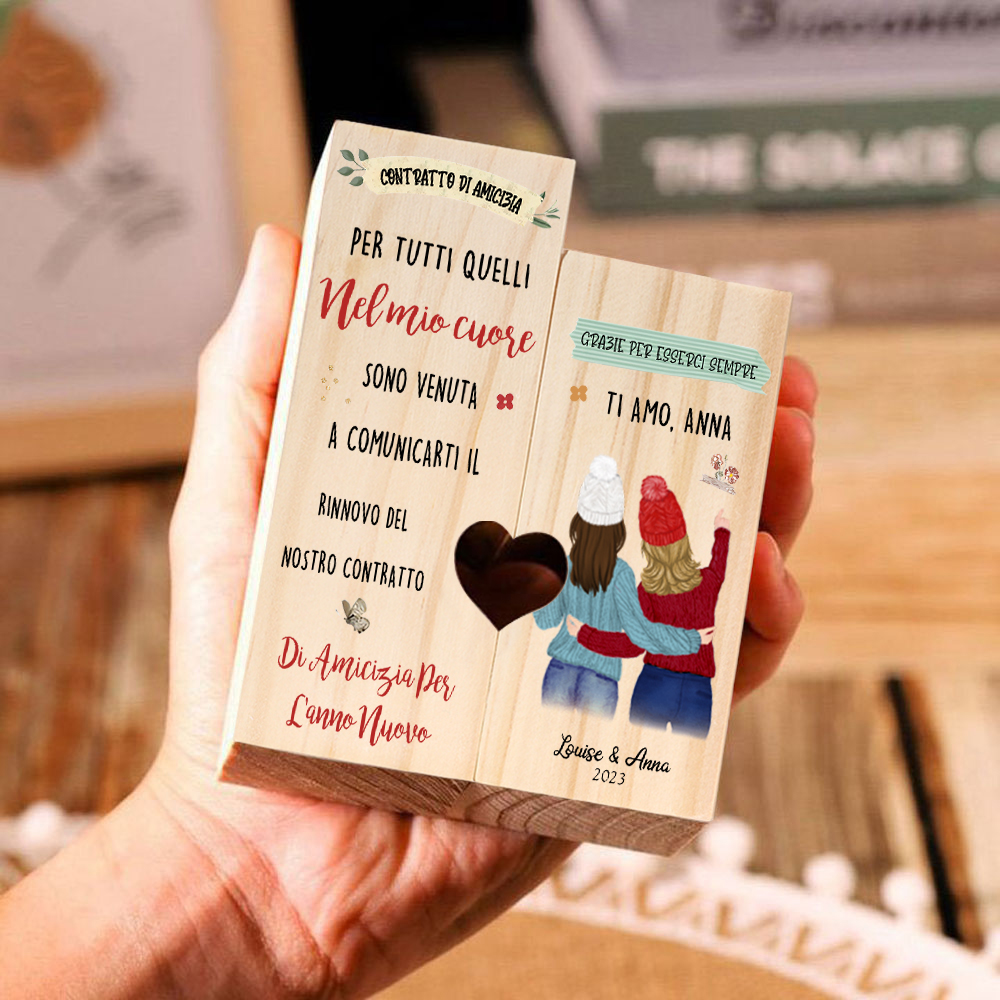 CONTRATTO DI AMICIZIA
PER TUTTI QUELLI
Nel mio cuore
SONO VENUTA
A COMUNICARTI IL
RINNOVO DEL
NOSTRO CONTRATTO
Di Amicizia Per
L'anno Nuovo
GRAZIE PER ESSERCI SEMPRE
TI AMO, ANNA
Louise & Anna
2023
THE SOLACE